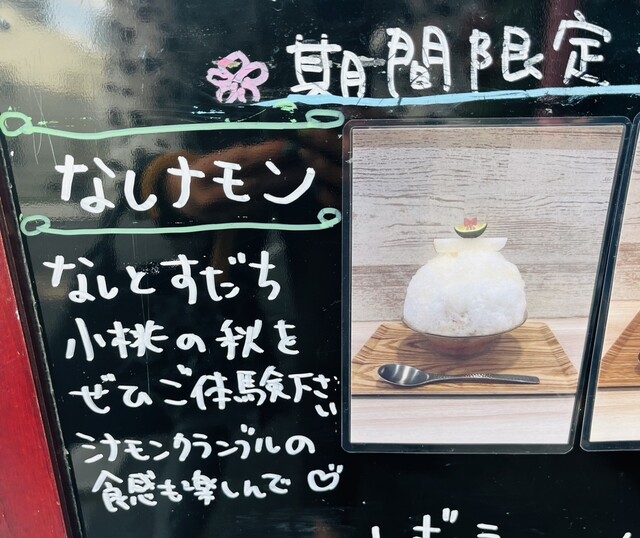 期間限定
なしナモン
なしとすだち
小桃の秋を
ぜひご体験下さい
シナモンクランブルの
食感も楽しんで♡